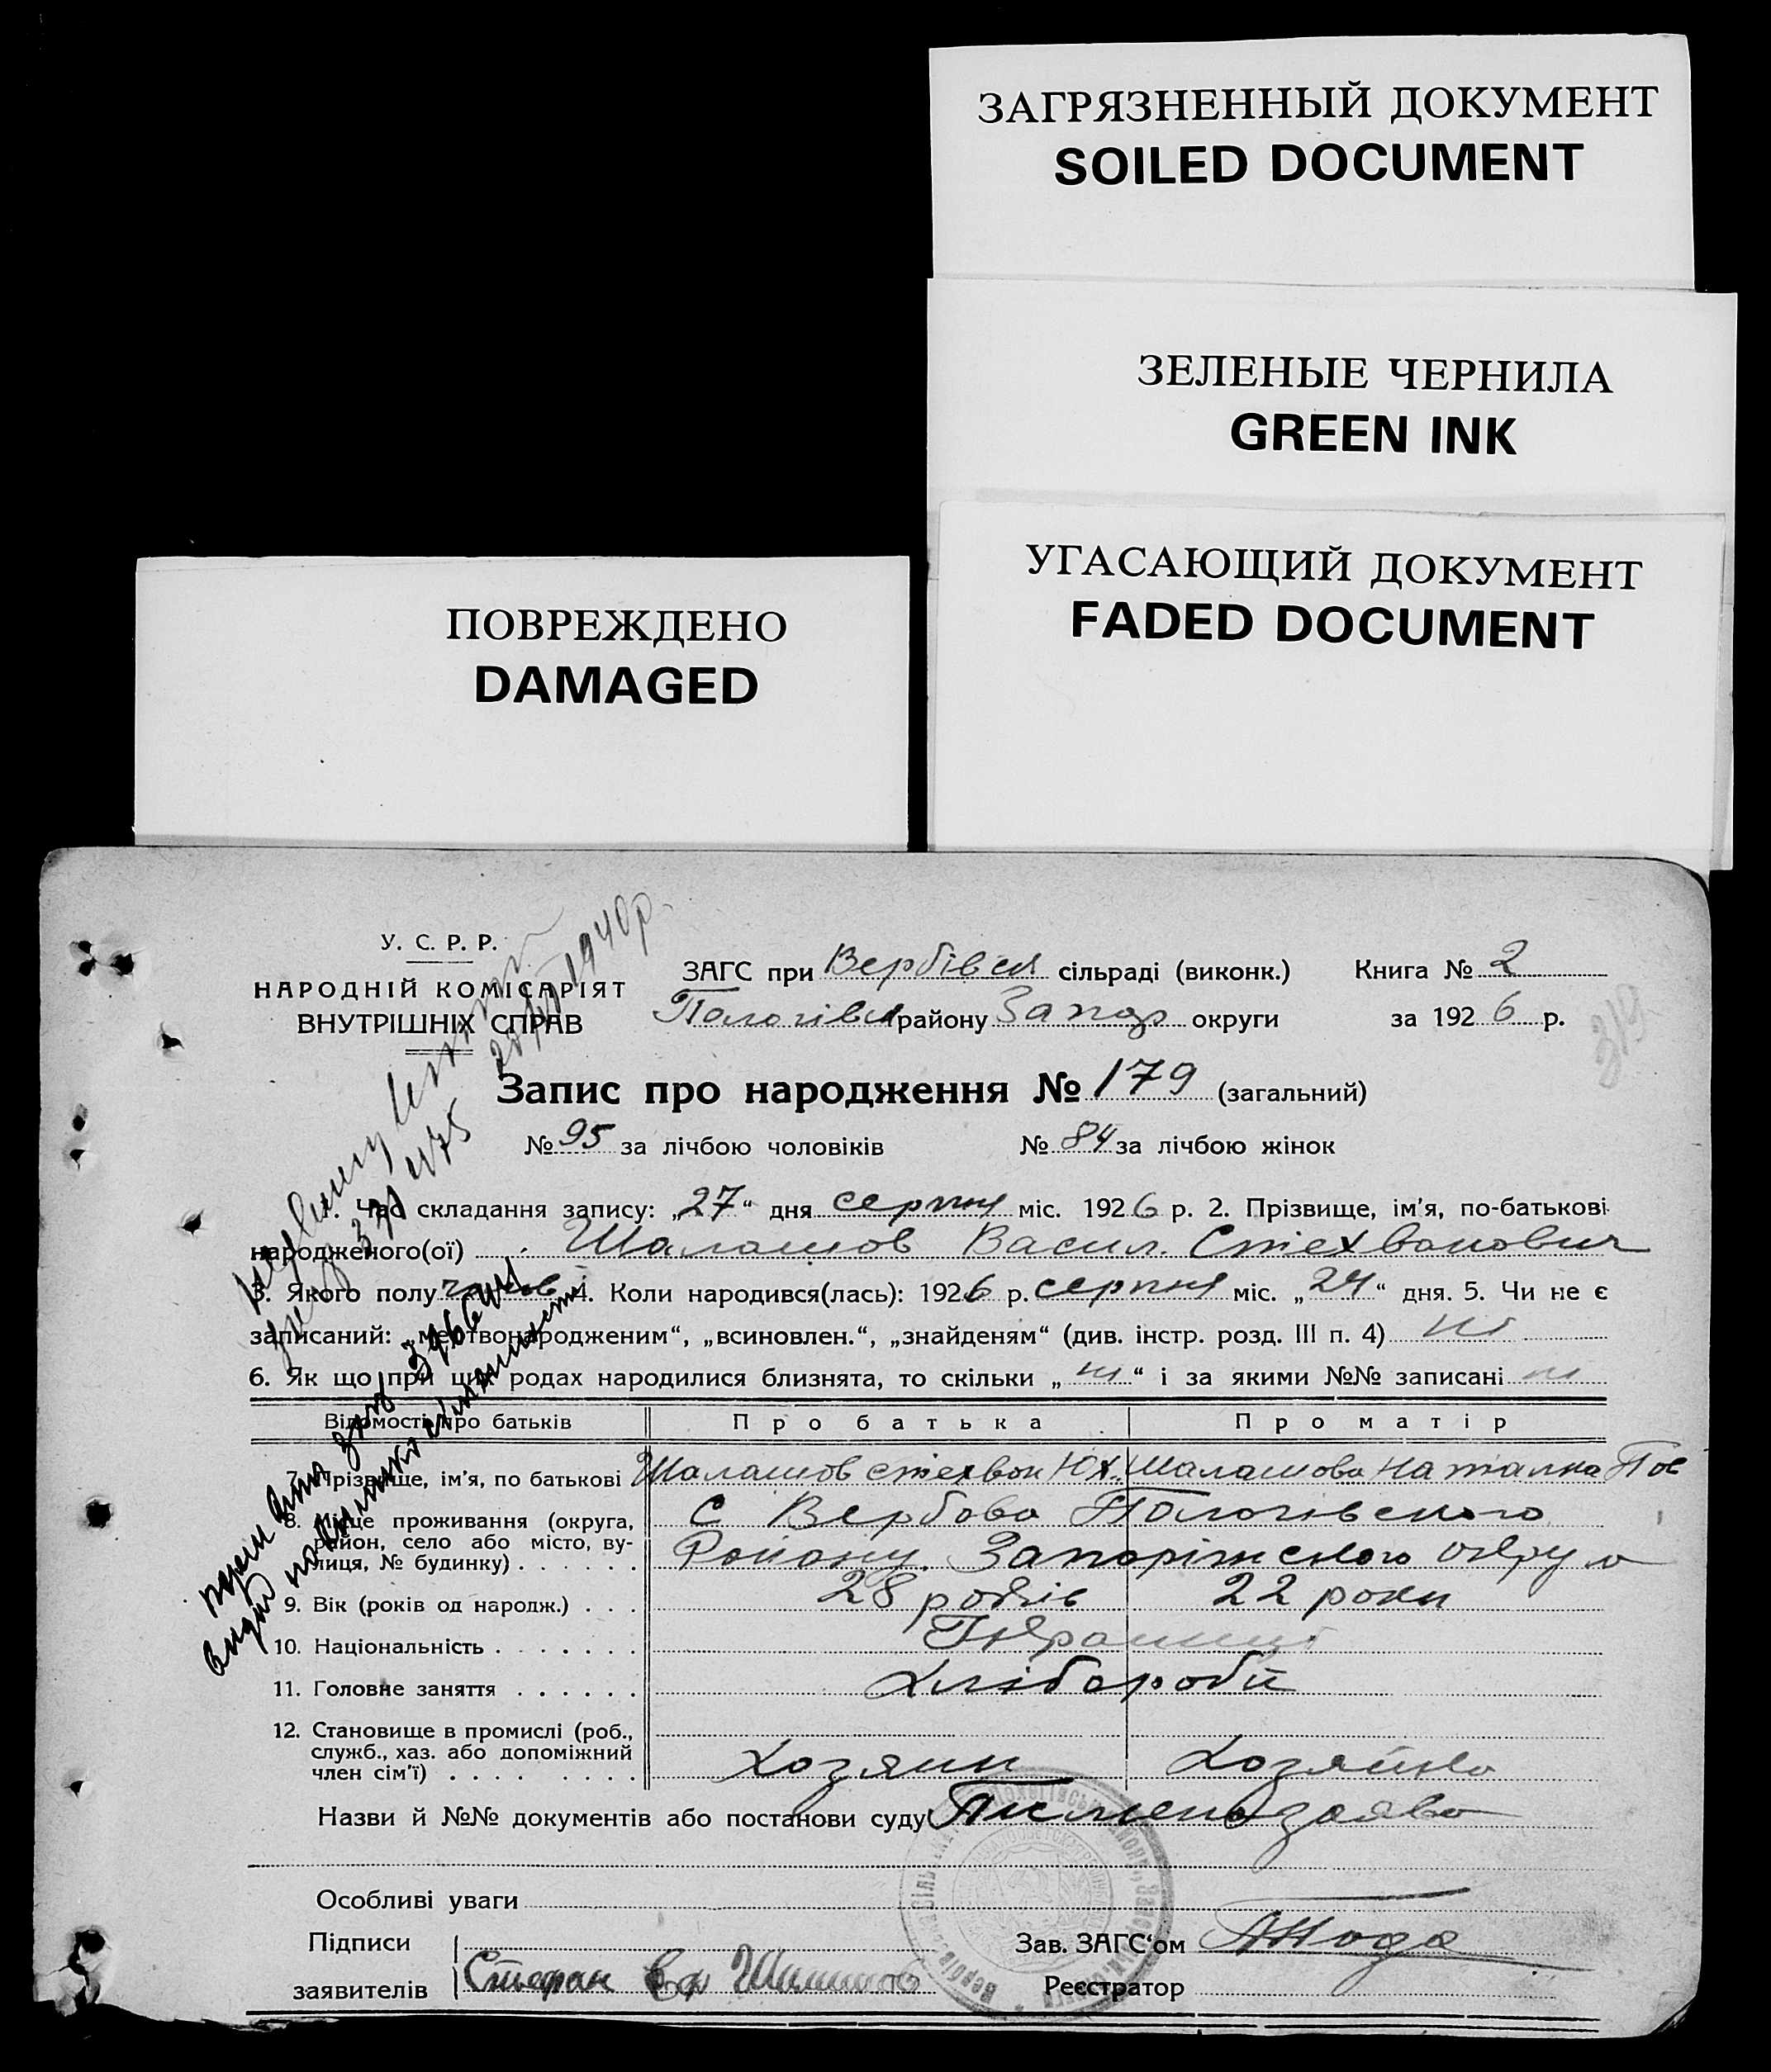 ЗАГРЯЗНЕННЫЙ ДОКУМЕНТ
SOILED DOCUMENT
ЗЕЛЕНЫЕ ЧЕРНИЛА
GREEN INK
УГАСАЮЩИЙ ДОКУМЕНТ
FADED DOCUMENT
ПОВРЕЖДЕНО
DAMAGED
У. С. Р. Р.
НАРОДНІЙ КОМІСАРІЯТ
ВНУТРІШНІХ СПРАВ
ЗАГС при Вербівск сільраді (виконк.) Книга № 2
Пологівск району Запор округи за 1926 р.
319
28/XI 1940р.
Запис про народження № 179 (загальний)
№ 95 за лічбою чоловіків № 84 за лічбою жінок
1. Час складання запису: „27“ дня серпня міс. 1926 р. 2. Прізвище, ім'я, по-батькові
народженого(ої) Шалашов Васил. Стехванович
3. Якого полу чолов 4. Коли народився(лась): 1926 р. серпня міс. „24“ дня. 5. Чи не є
записаний: „мертвонародженим“, „всиновлен.“, „знайденям“ (див. інстр. розд. III п. 4) ні
6. Як що при цих родах народилися близнята, то скільки „ні“ і за якими №№ записані ні
Відомості про батьків Про батька Про матір
7. Прізвище, ім'я, по батькові Шалашов Стехван Юх. Шалашова Наталка Пос
8. Місце проживання (округа, район, село або місто, вулиця, № будинку) С Вербова Пологівского
Району Запоріжського округа
9. Вік (років од народж.) 28 років 22 роки
10. Національність Українці
11. Головне заняття Хліборобії
12. Становище в промислі (роб., служб., хаз. або допоміжний член сім'ї) Хозяин Хозяйка
Назви й №№ документів або постанови суду Письмена заява
Особливі уваги
Підписи
заявителів Стефан Еф Шалашов
Зав. ЗАГС'ом
Реєстратор